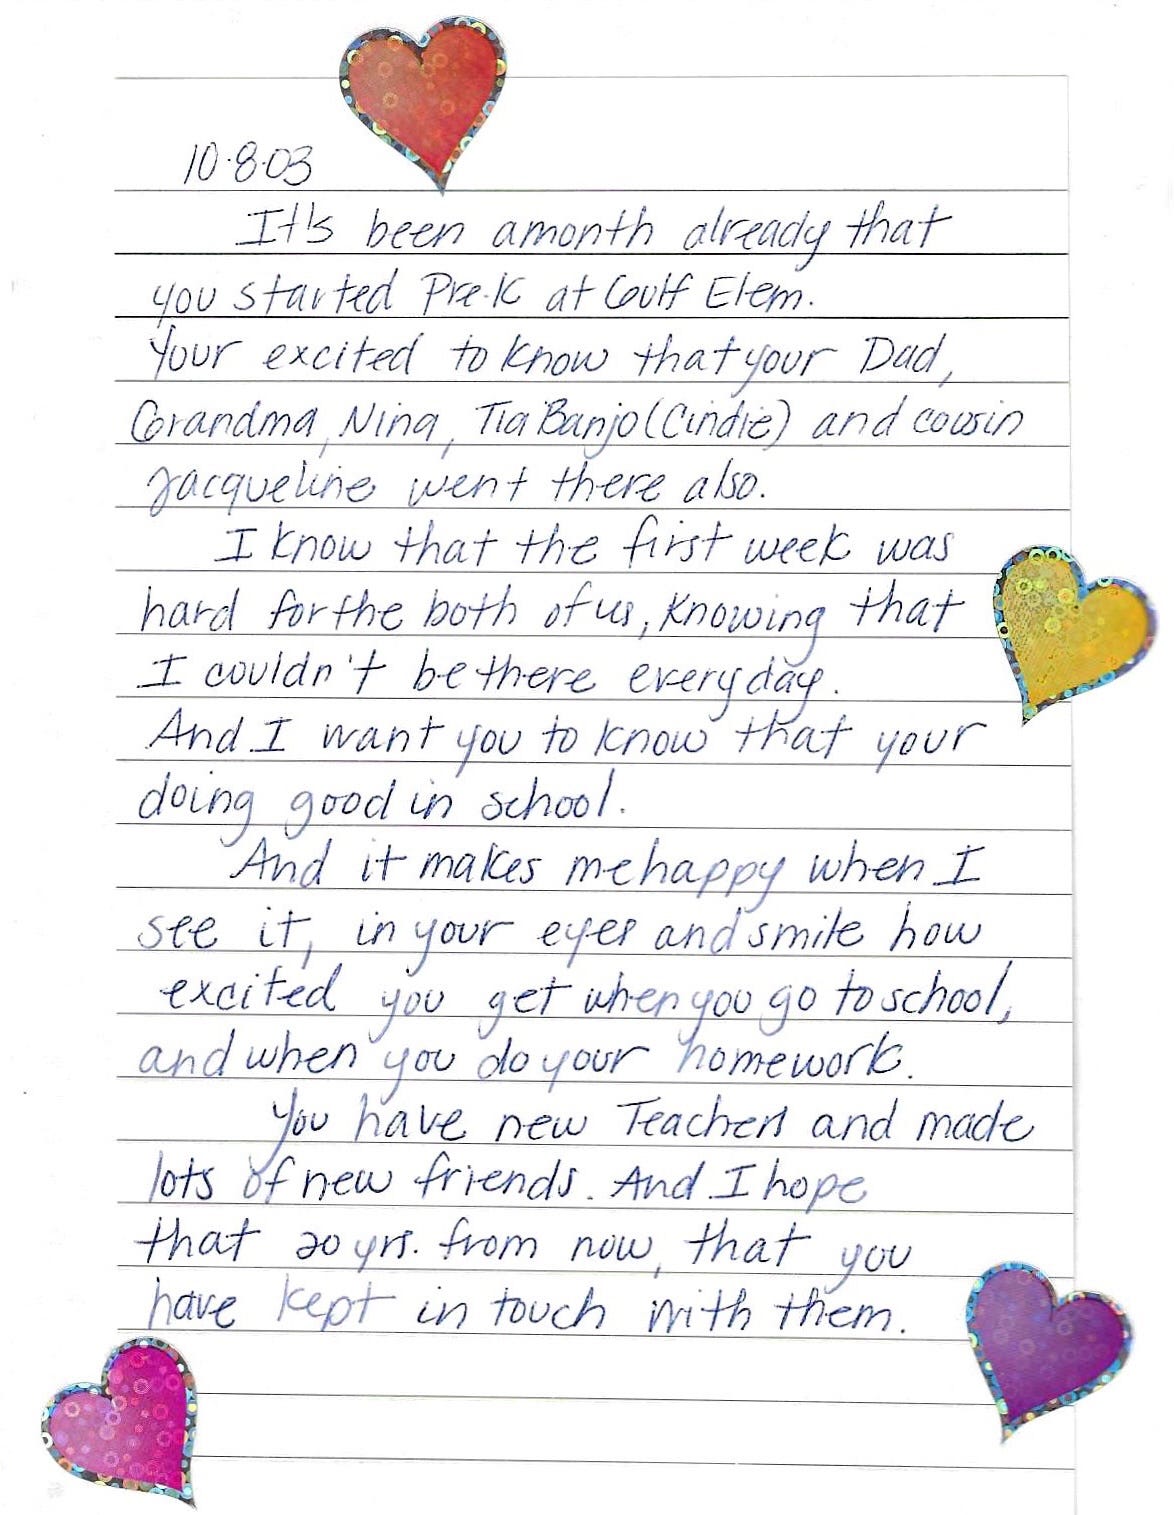 10·8·03
It's been a month already that
you started Pre-K at Gulf Elem.
Your excited to know that your Dad,
Grandma, Nina, Tia Banjo (Cindie) and cousin
Jacqueline went there also.
I know that the first week was
hard for the both of us, knowing that
I couldn't be there everyday.
And I want you to know that your
doing good in school.
And it makes me happy when I
see it, in your eyes and smile how
excited you get when you go to school,
and when you do your homework.
You have new Teachers and made
lots of new friends. And I hope
that 20 yrs. from now, that you
have kept in touch with them.